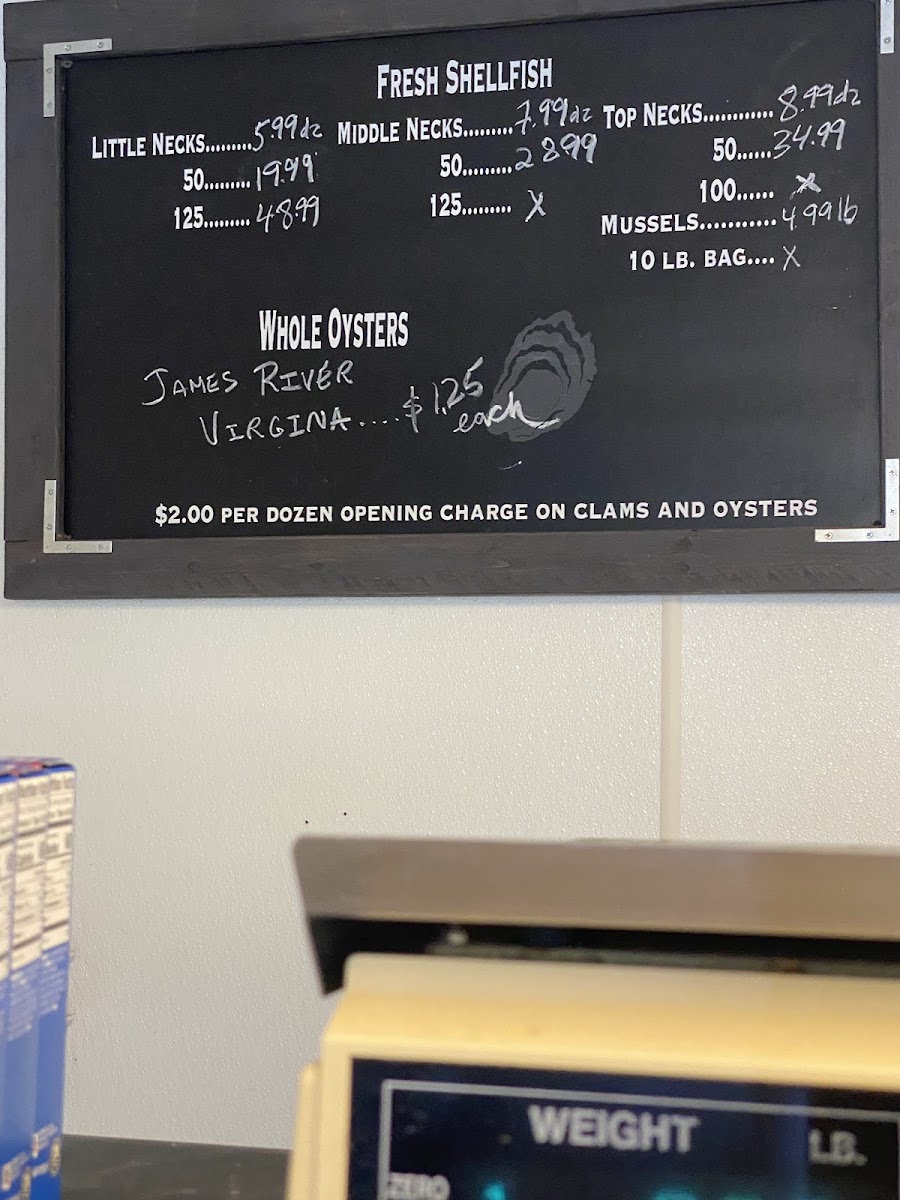 FRESH SHELLFISH
LITTLE NECKS.........5.99 dz
50.........19.99
125.........48.99
MIDDLE NECKS.........7.99 dz
50.........28.99
125......... X
TOP NECKS............ 8.99 dz
50......34.99
100...... X
MUSSELS...........4.99 lb
10 LB. BAG.... X
WHOLE OYSTERS
JAMES RIVER
VIRGINA....$1.25
each
$2.00 PER DOZEN OPENING CHARGE ON CLAMS AND OYSTERS
WEIGHT LB.
ZERO